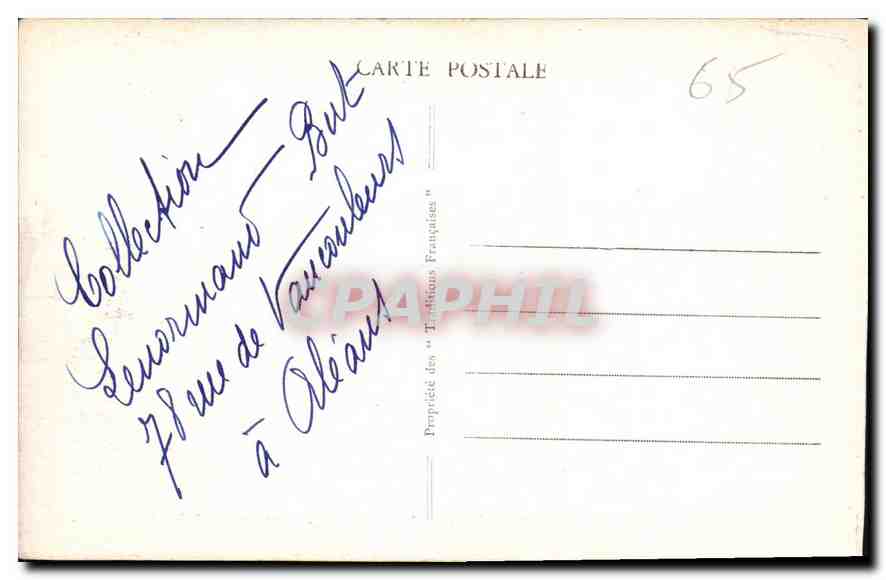 CARTE POSTALE
65
Collection
Lenormand But
78 rue de Vaucouleurs
à Orléans
Propriété des " Traditions Françaises "
CPAPHIL